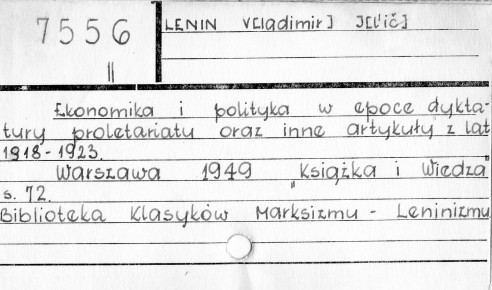 7556
II
LENIN V[ladimir] J[l'ič]
Ekonomika i polityka w epoce dykta-
tury proletariatu oraz inne artykuły z lat
1918-1923.
Warszawa 1949 "Książka i Wiedza"
s. 72.
Biblioteka Klasyków Marksizmu - Leninizmu